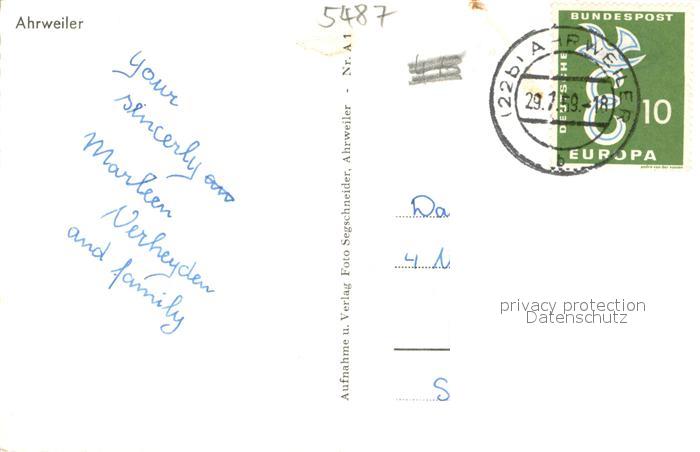 Ahrweiler
5487
Your
sincerly
Marleen
Verheyden
and family
Aufnahme u. Verlag Foto Segschneider, Ahrweiler - Nr. A 1
(22b) AHRWEILER
29.7.59.-18
b
DEUTSCHE
BUNDESPOST
10
EUROPA
Da
4 N
S
privacy protection
Datenschutz